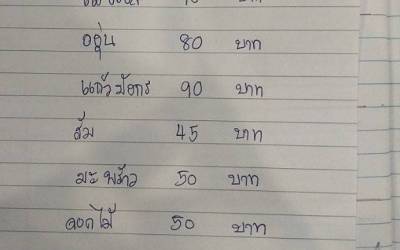 องุ่น 80 บาท
แก้วมังกร 90 บาท
ส้ม 45 บาท
มะพร้าว 50 บาท
ดอกไม้ 50 บาท